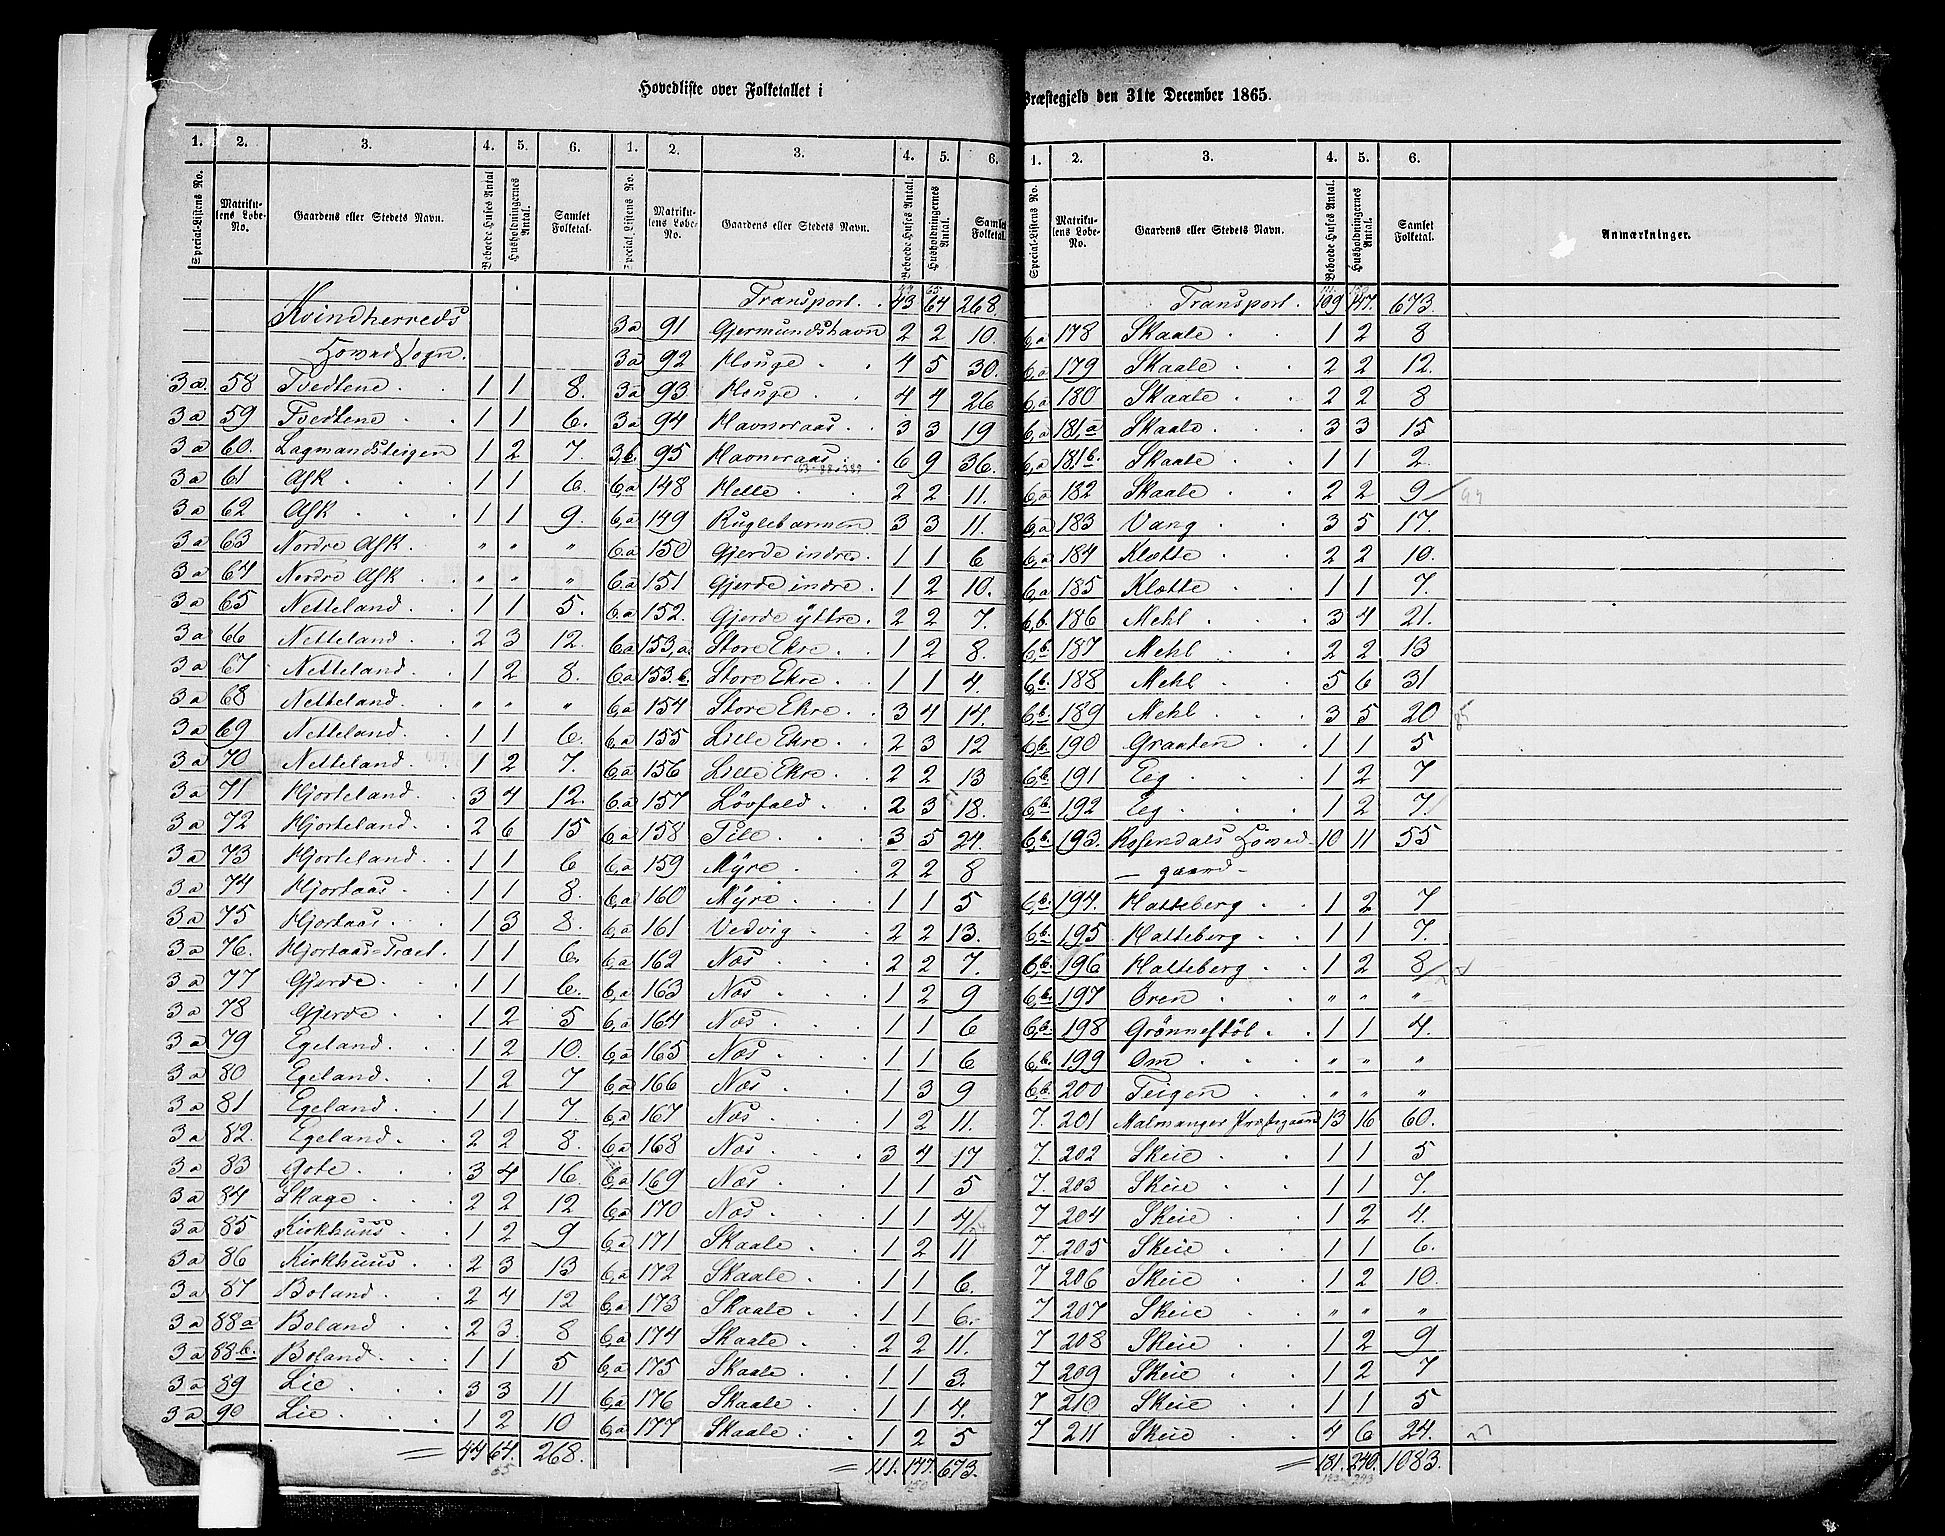 Hovedliste over Folketallet i Præstegjeld den 31te December 1865.
1. 2. 3. 4. 5. 6.
Special-Listens No. Matrikulens Løbe-No. Gaardens eller Stedets Navn. Beboede Huses Antal Husholdningernes Antal. Samlet Folketal.
Kvindherreds
Hovedsogn.
3a 58 Tvedtene 1 1 8.
3a 59 Tvedtene 1 1 6.
3a 60. Lagmandsteigen 1 2 7.
3a 61 Ask 1 1 6.
3a 62 Ask 1 1 9.
3a 63 Nordre Ask " " "
3a 64 Nordre Ask " " "
3a 65 Netteland 1 1 5.
3a 66 Netteland 2 3 12.
3a 67 Netteland 1 2 8.
3a 68 Netteland " " "
3a 69 Netteland 1 1 6.
3a 70 Netteland 1 2 7.
3a 71 Hjorteland 3 4 12.
3a 72 Hjorteland 2 6 15
3a 73 Hjorteland 1 1 6
3a 74 Hjortaas 1 1 8.
3a 75 Hjortaas 1 3 8.
3a 76. Hjortaas-Træet 1 1 6.
3a 77 Gjerde 1 1 6.
3a 78 Gjerde 1 2 5
3a 79 Egeland 1 2 10.
3a 80 Egeland 1 2 7
3a 81 Egeland 1 1 7.
3a 82. Egeland 2 2 8.
3a 83 Gote 3 4 16.
3a 84 Skage 2 2 12
3a 85 Kirkhuus 1 2 9
3a 86 Kirkhuus 2 3 13
3a 87 Boland 2 4 12
3a 88a Boland 2 3. 8
3a 88b. Boland 1 1 5
3a 89 Lie 3 3 11
3a 90 Lie 1 2 10
= 44 64. 268.
65
1. 2. 3. 4. 5. 6.
Special-Listens No. Matrikulens Løbe-No. Gaardens eller Stedets Navn. Beboede Huses Antal. Husholdningernes Antal. Samlet Folketal.
Transport. 43 64 268.
3a 91 Gjermundshavn 2 2 10.
3a 92 Houge 4 5 30.
3a 93 Houge 4 4 26
3a 94 Havneraas 3 3 19
3,b 95 Havneraas 6 9 36.
6,a 148 Helle 2 2 11.
6,a 149 Ruglebarmen 3 3 11.
6a 150 Gjerde indre 1 1 6
6a 151 Gjerde indre 1 2 10.
6a 152. Gjerde yttre 2 2 7.
6a 153,a. Store Ekre 1 2 8.
6a 153.b. Store Ekre 1 1 4.
6,a 154 Store Ekre 3 4 14.
6a 155 Lille Ekre 2 3 12
6,a 156 Lille Ekre 2 2 13
6,a 157 Løvfald 2 3 18.
6,a 158 Tile 3 5 24.
6,a 159 Myre 2 2 8
6,a 160 Myre 1 1 5
6,a 161 Vedvig 2 2 13.
6,a 162 Næs 2 2 7.
6,a 163 Næs 1 2 9
6,a 164 Næs 1 1 6
6,a 165 Næs 1 1 6
6,a 166 Næs 1 3 9
6,a 167 Næs 1 2 11.
6a 168 Næs 3 4 17
6,a 169 Næs 1 1 5
6,a 170 Næs 1 1 4
6,a 171 Skaale 1 2 11
6,a 172 Skaale 1 1 6.
6,a 173 Skaale 1 1 6.
6,a 174 Skaale 2 2 11.
6,a 175 Skaale 1 1 3.
6,a 176 Skaale 1 1 4.
6,a 177 Skaale 1 2 5
= 111. 147. 673.
150
1. 2. 3. 4. 5. 6.
Special-Listens No. Matrikulens Løbe-No. Gaardens eller Stedets Navn. Beboede Huses Antal. Husholdningernes Antal. Samlet Folketal. Anmærkninger.
Transport. 109 147. 673.
6,a 178 Skaale 1 2 8
6,a 179 Skaale 2 2 12.
6,a 180 Skaale 2 2 8
6,a 181,a Skaale 3 3 15
6,a 181b. Skaale 1 1 2.
6,a 182 Skaale 2 2 9
6,a 183 Vang 3 5 17.
6,a 184 Klætte 2 2 10.
6,a 185 Klætte 1 1 7.
6,b. 186 Mehl 3 4 21.
6,b 187 Mehl 2 2 13
6,b. 188 Mehl 5 6 31
6,b. 189 Mehl 3 5 20
6,b. 190 Graaten 1 1 5
6,b. 191 Eeg 1 2 7
6,b. 192 Eeg 1 2 7.
6,b. 193. Rosendals Hovedgaard 10 11 55
6,b. 194. Hatteberg 1 2 7
6,b. 195 Hatteberg 1 1 7.
6,b. 196 Hatteberg 1 2 8
6,b. 197 Øren " " "
6,b. 198 Grønnestøl 1 1 4.
6,b. 199 Om " " "
6,b. 200 Teigen " " "
7. 201 Malmanger Præstegaard 13 16 60.
7. 202 Skeie 1 1 5
7. 203 Skeie 1 1 7.
7 204 Skeie 1 2 4.
7. 205 Skeie 1 1 6.
7 206 Skeie 1 2 10.
7 207 Skeie " " "
7 208 Skeie 1 2 9
7 209 Skeie 1 2 7
7 210 Skeie 1 1 5
7 211 Skeie 4 6 24.
= 181. 240. 1083.
183 243